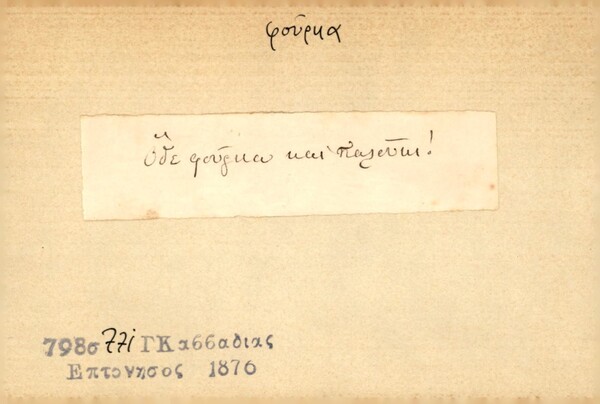 φούρκα
Ὦδε φούρκα καὶ παλοῦκι!
798σ 771 ΓΚαββαδιας
Επτονησος 1876